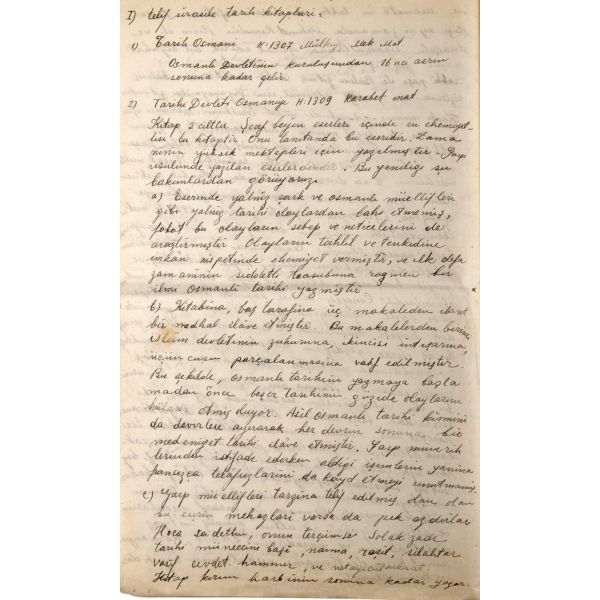 I) telif sırasile tarih kitapları.
1) Tarihi Osmani H:1307 Mülkiye Mek Mat.
Osmanlı Devletinin kuruluşundan 16 ncı asrın
sonuna kadar gelir.
2) Tarihi Devleti Osmaniye H:1309 Karabet mat
Kitap 2 cilttir. Şeref beyin eserleri içinde en ehemiyet-
lisi bu kitaptır. Onu tanıtanda bu eseridir. Zama
nının yüksek mektepleri için yazılmıştır. Garp
usulünde yazılan eserlerdendir. Bu yeniliği şu
bakımlardan görüyoruz.
a) Eserinde yalnız şark ve osmanlı müellifleri
gibi yalnız tarihi olaylardan bahs etmemiş,
fakat bu olayların sebep ve neticelerini de
araştırmıştır. Olayların tahlil ve tenkidine
imkân nispetinde ehemiyet vermiştir, ve ilk defa
zamanının şiddetli taasubuna rağmen bir
ilmi Osmanlı tarihi yazmıştır
b) Kitabına, baş tarafına üç makaleden ibaret
bir medhal ilâve etmiştir. Bu makalelerden birinci
islâm devletinin zuhuruna, ikincisi intişarına,
üçüncüsü parçalanmasına vakf edilmiştir.
Bu şekilde, osmanlı tarihini yazmaya başla
madan önce beşer tarihinin güzide olaylarını
hülâsa etmiş oluyor. Asıl Osmanlı tarihi kısmını
da devirlere ayırarak her devrin sonuna bir
medeniyet tarihi ilâve etmiştir. Garp müverrih
lerinden istifade ederken aldığı isimlerin yanına
fransızca telâfuzlarını da kayd etmeyi unutmamış.
c) Garp müellifleri tarzına telif edilmiş olan
bu eserin mehazları varsa da pek azdırlar
Hoca sadettin, onun tercümesi Solak zade
tarihi müneccim başı, naima, raşit, silahtar
vasıf cevdet hammer, ve netayicülvukuat.
Kitap kırım harbinin sonuna kadar yazar.